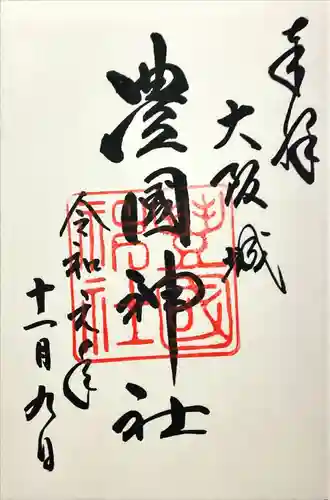 奉拝
大阪城
豊國神社
令和元年
十一月九日
豊國神社